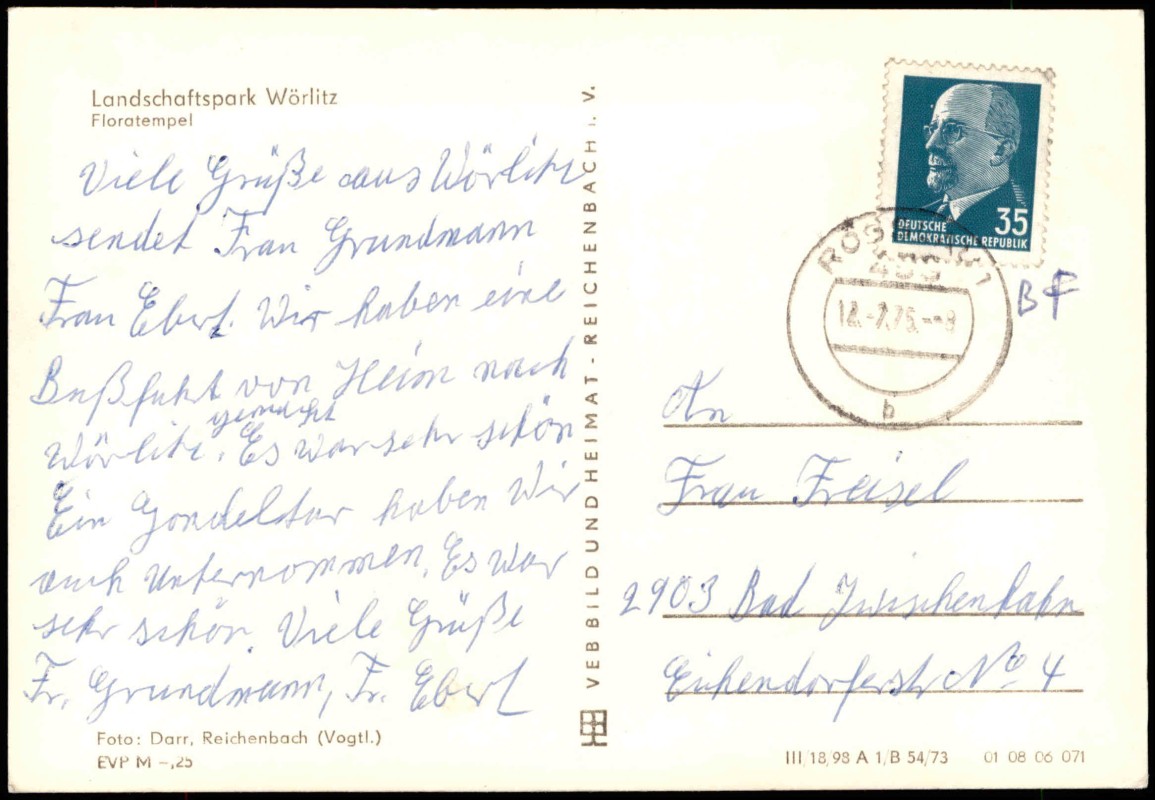 Landschaftspark Wörlitz
Floratempel
Viele Grüße aus Wörlitz
sendet Frau Grundmann
Frau Ebert. Wir haben eine
Bußfahrt von Heim nach
gemacht
Wörlitz. Es war sehr schön
Ein Gondeltur haben Wir
auch Unternommen. Es war
sehr schön. Viele Grüße
Fr. Grundmann, Fr. Ebert
Foto: Darr, Reichenbach (Vogtl.)
EVP M –,25
VEB BILD UND HEIMAT - REICHENBACH i. V.
35
DEUTSCHE
DEMOKRATISCHE REPUBLIK
b
BF
An
Frau Freisel
2903 Bad Zwischenhahn
Eichendorferstr No 4
III/18/98 A 1/B 54/73 01 08 06 071